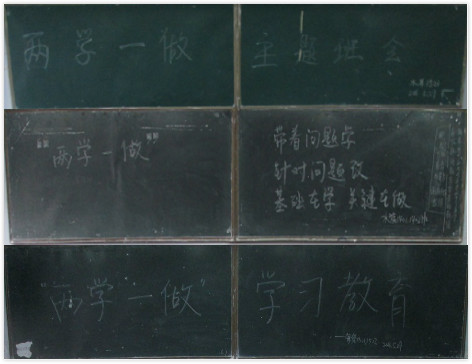 两学一做
主题班会
"两学一做"
带着问题学
针对问题改
基础在学 关键在做
"两学一做"
学习教育